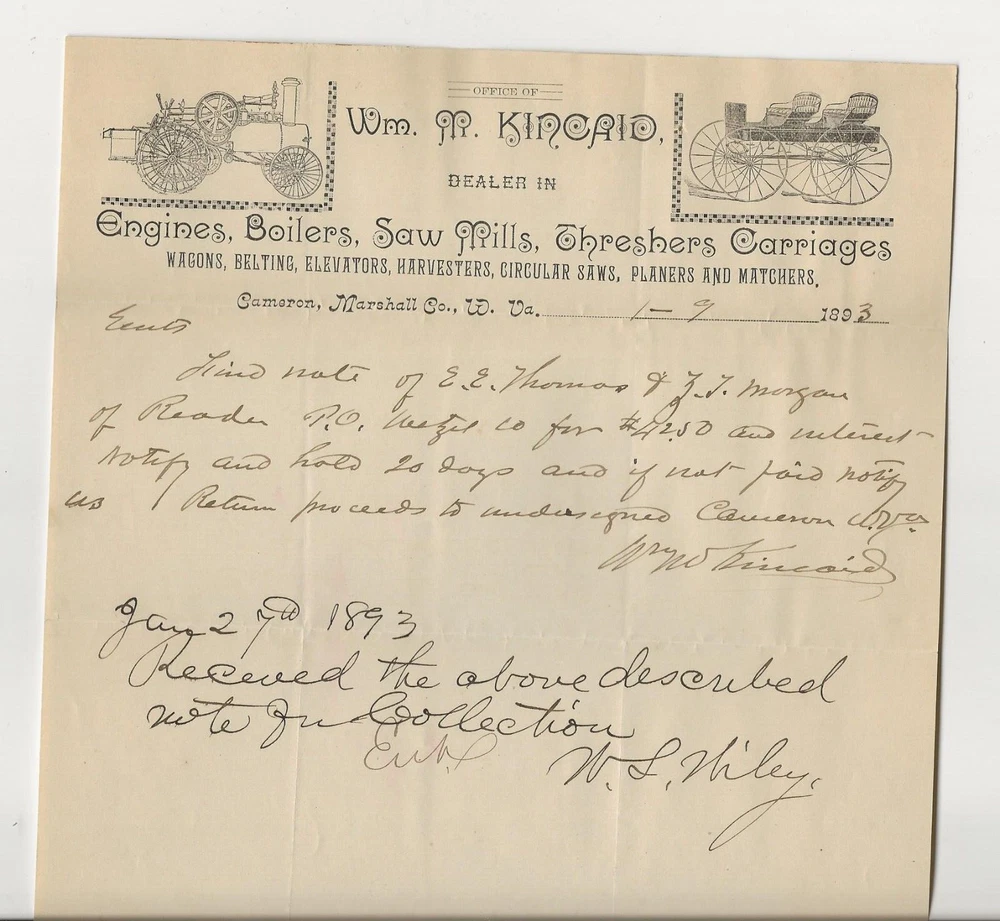 OFFICE OF
Wm. M. KINCAID,
DEALER IN
Engines, Boilers, Saw Mills, Threshers Carriages
WAGONS, BELTING, ELEVATORS, HARVESTERS, CIRCULAR SAWS, PLANERS AND MATCHERS.
Cameron, Marshall Co., W. Va. 1-9 1893
Gents
Find note of E.E. Thomas & Z.T. Morgan
of Reader P.O. Wetzel Co for $42.50 and interest
Notify and hold 20 days and if not paid notify
us / Return proceeds to undersigned Cameron W.Va.
Wm M Kincaid
Jan 27th 1893
Received the above described
note for Collection
W. S. Wiley.